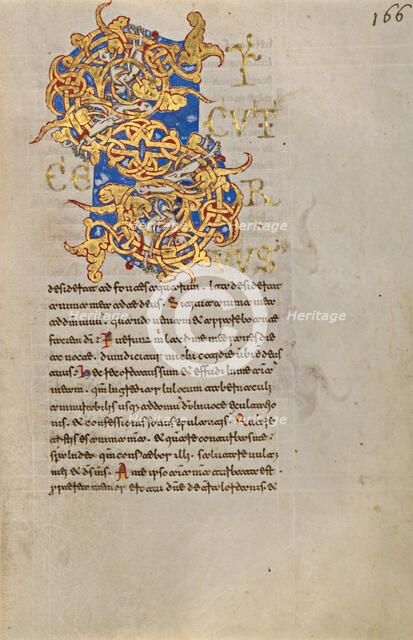 166
S I
CUT
CE R
VUS
desiderat ad fontes aquarum . ita desiderat
anima mea ad te deus . Sitiuit anima mea
ad dm uiuu . quando ueniam & apparebo ante
faciem di : Fuerunt m lacrime mee panes die
ac nocte . dum dicitur michi cotidie ubi est deus
tuus . Hec recordatus sum & effudi in me anima
meam . qm ingrediar in locum tabernaculi
admirabilis usq; ad domu di in uoce exultatio
nis . & confessionis sonus epulantis . Quare
tristis es anima mea . & quare conturbas me :
Spera in deo qm confitebor illi . salutare uul
tus mei & ds ms . A me ipso anima mea turbata est .
propterea memor ero tui dne de terra iordanis . &
Heritage
Heritage
Heritage
Heritage